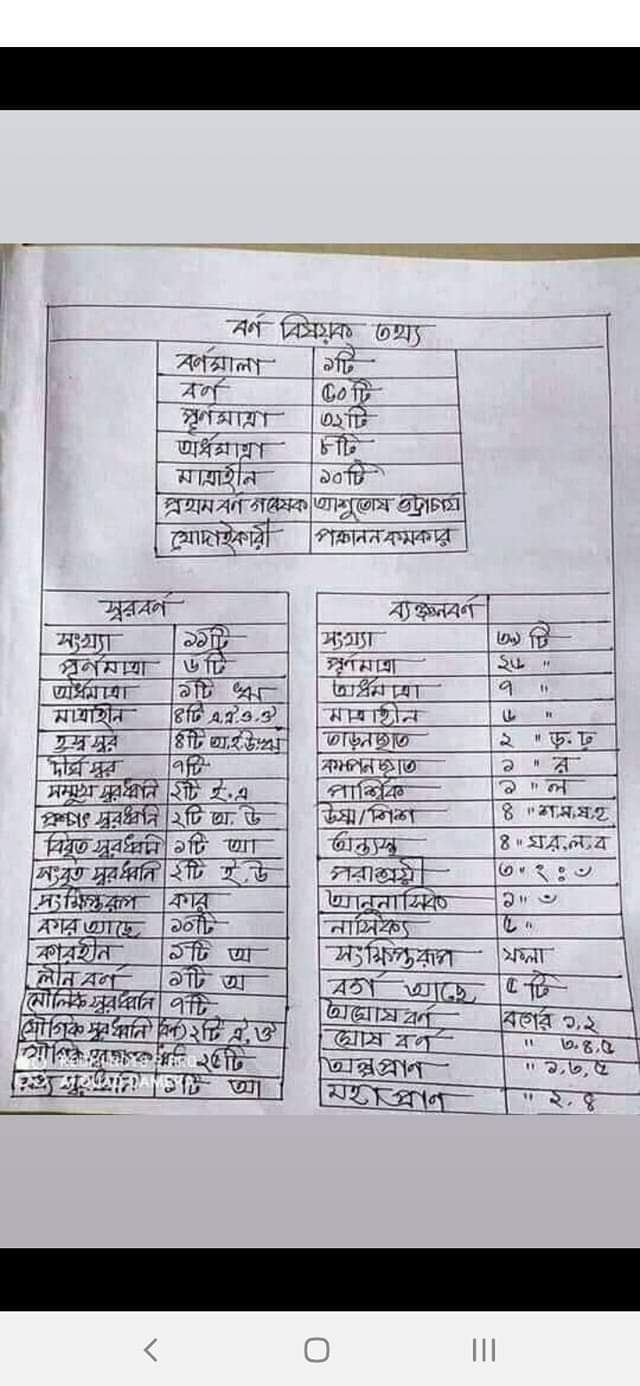 বর্ণ বিষয়ক তথ্য
বর্ণমালা ১টি
বর্ণ ৫০টি
পূর্ণমাত্রা ৩২টি
অর্ধমাত্রা ৮টি
মাত্রাহীন ১০টি
প্রথম বর্ণ গবেষক আশুতোষ ভট্টাচার্য
খোদাইকারী পঞ্চানন কর্মকার
স্বরবর্ণ
সংখ্যা ১১টি
পূর্ণমাত্রা ৬টি
অর্ধমাত্রা ১টি ঋ
মাত্রাহীন ৪টি এ,ঐ,ও,ঔ
হ্রস্ব স্বর ৪টি অ.ই.উ.ঋ
দীর্ঘ স্বর ৭টি
সম্মুখ স্বরধ্বনি ২টি ই.এ
পশ্চাৎ স্বরধ্বনি ২টি অ.উ
বিবৃত স্বরধ্বনি ১টি আ
সংবৃত স্বরধ্বনি ২টি ই.উ
সংক্ষিপ্তরূপ কার
কার আছে ১০টি
কারহীন ১টি অ
লীন বর্ণ ১টি অ
মৌলিক স্বরধ্বনি ৭টি
যৌগিক স্বরধ্বনি (বর্ণ) ২টি ঐ,ঔ
যৌগিক ২৫টি
১টি আ
ব্যঞ্জনবর্ণ
সংখ্যা ৩৯ টি
পূর্ণমাত্রা ২৬ "
অর্ধমাত্রা ৭ "
মাত্রাহীন ৬ "
তাড়নজাত ২ " ড়.ঢ়
কম্পনজাত ১ " র
পার্শ্বিক ১ " ল
উষ্ম/শিশ ৪ " শ.স.ষ.হ
অন্ত্যস্থ ৪ " য.র.ল.ব
পরাশ্রয়ী ৩ " ং ঃ ঁ
আনুনাসিক ১ " ঁ
নাসিক্য ৫ "
সংক্ষিপ্তরূপ ফলা
বর্গ আছে ৫ টি
অঘোষ বর্ণ বর্গের ১,২
ঘোষ বর্ণ " ৩,৪,৫
অল্পপ্রাণ " ১,৩,৫
মহাপ্রাণ " ২.৪